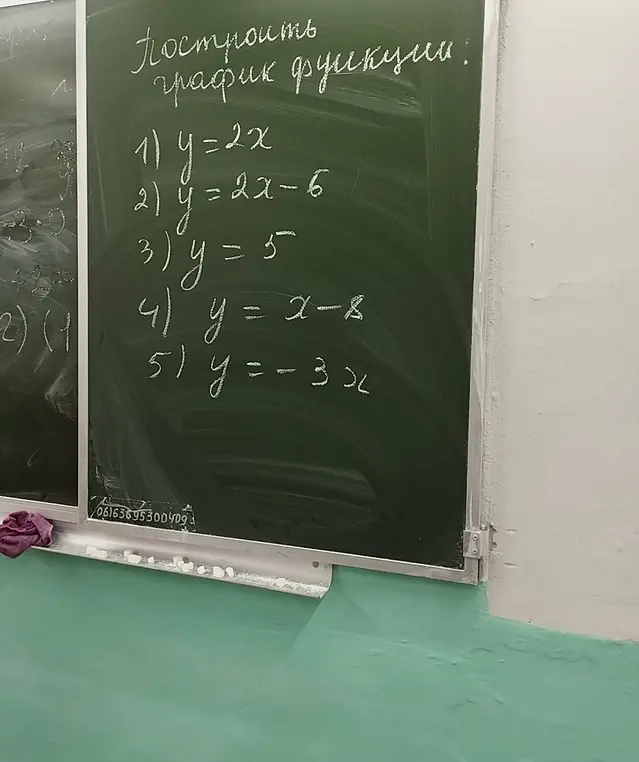 Построить
график функции:
1) y = 2x
2) y = 2x - 6
3) y = 5
4) y = x - 8
5) y = - 3x
2) (1
06163695300409